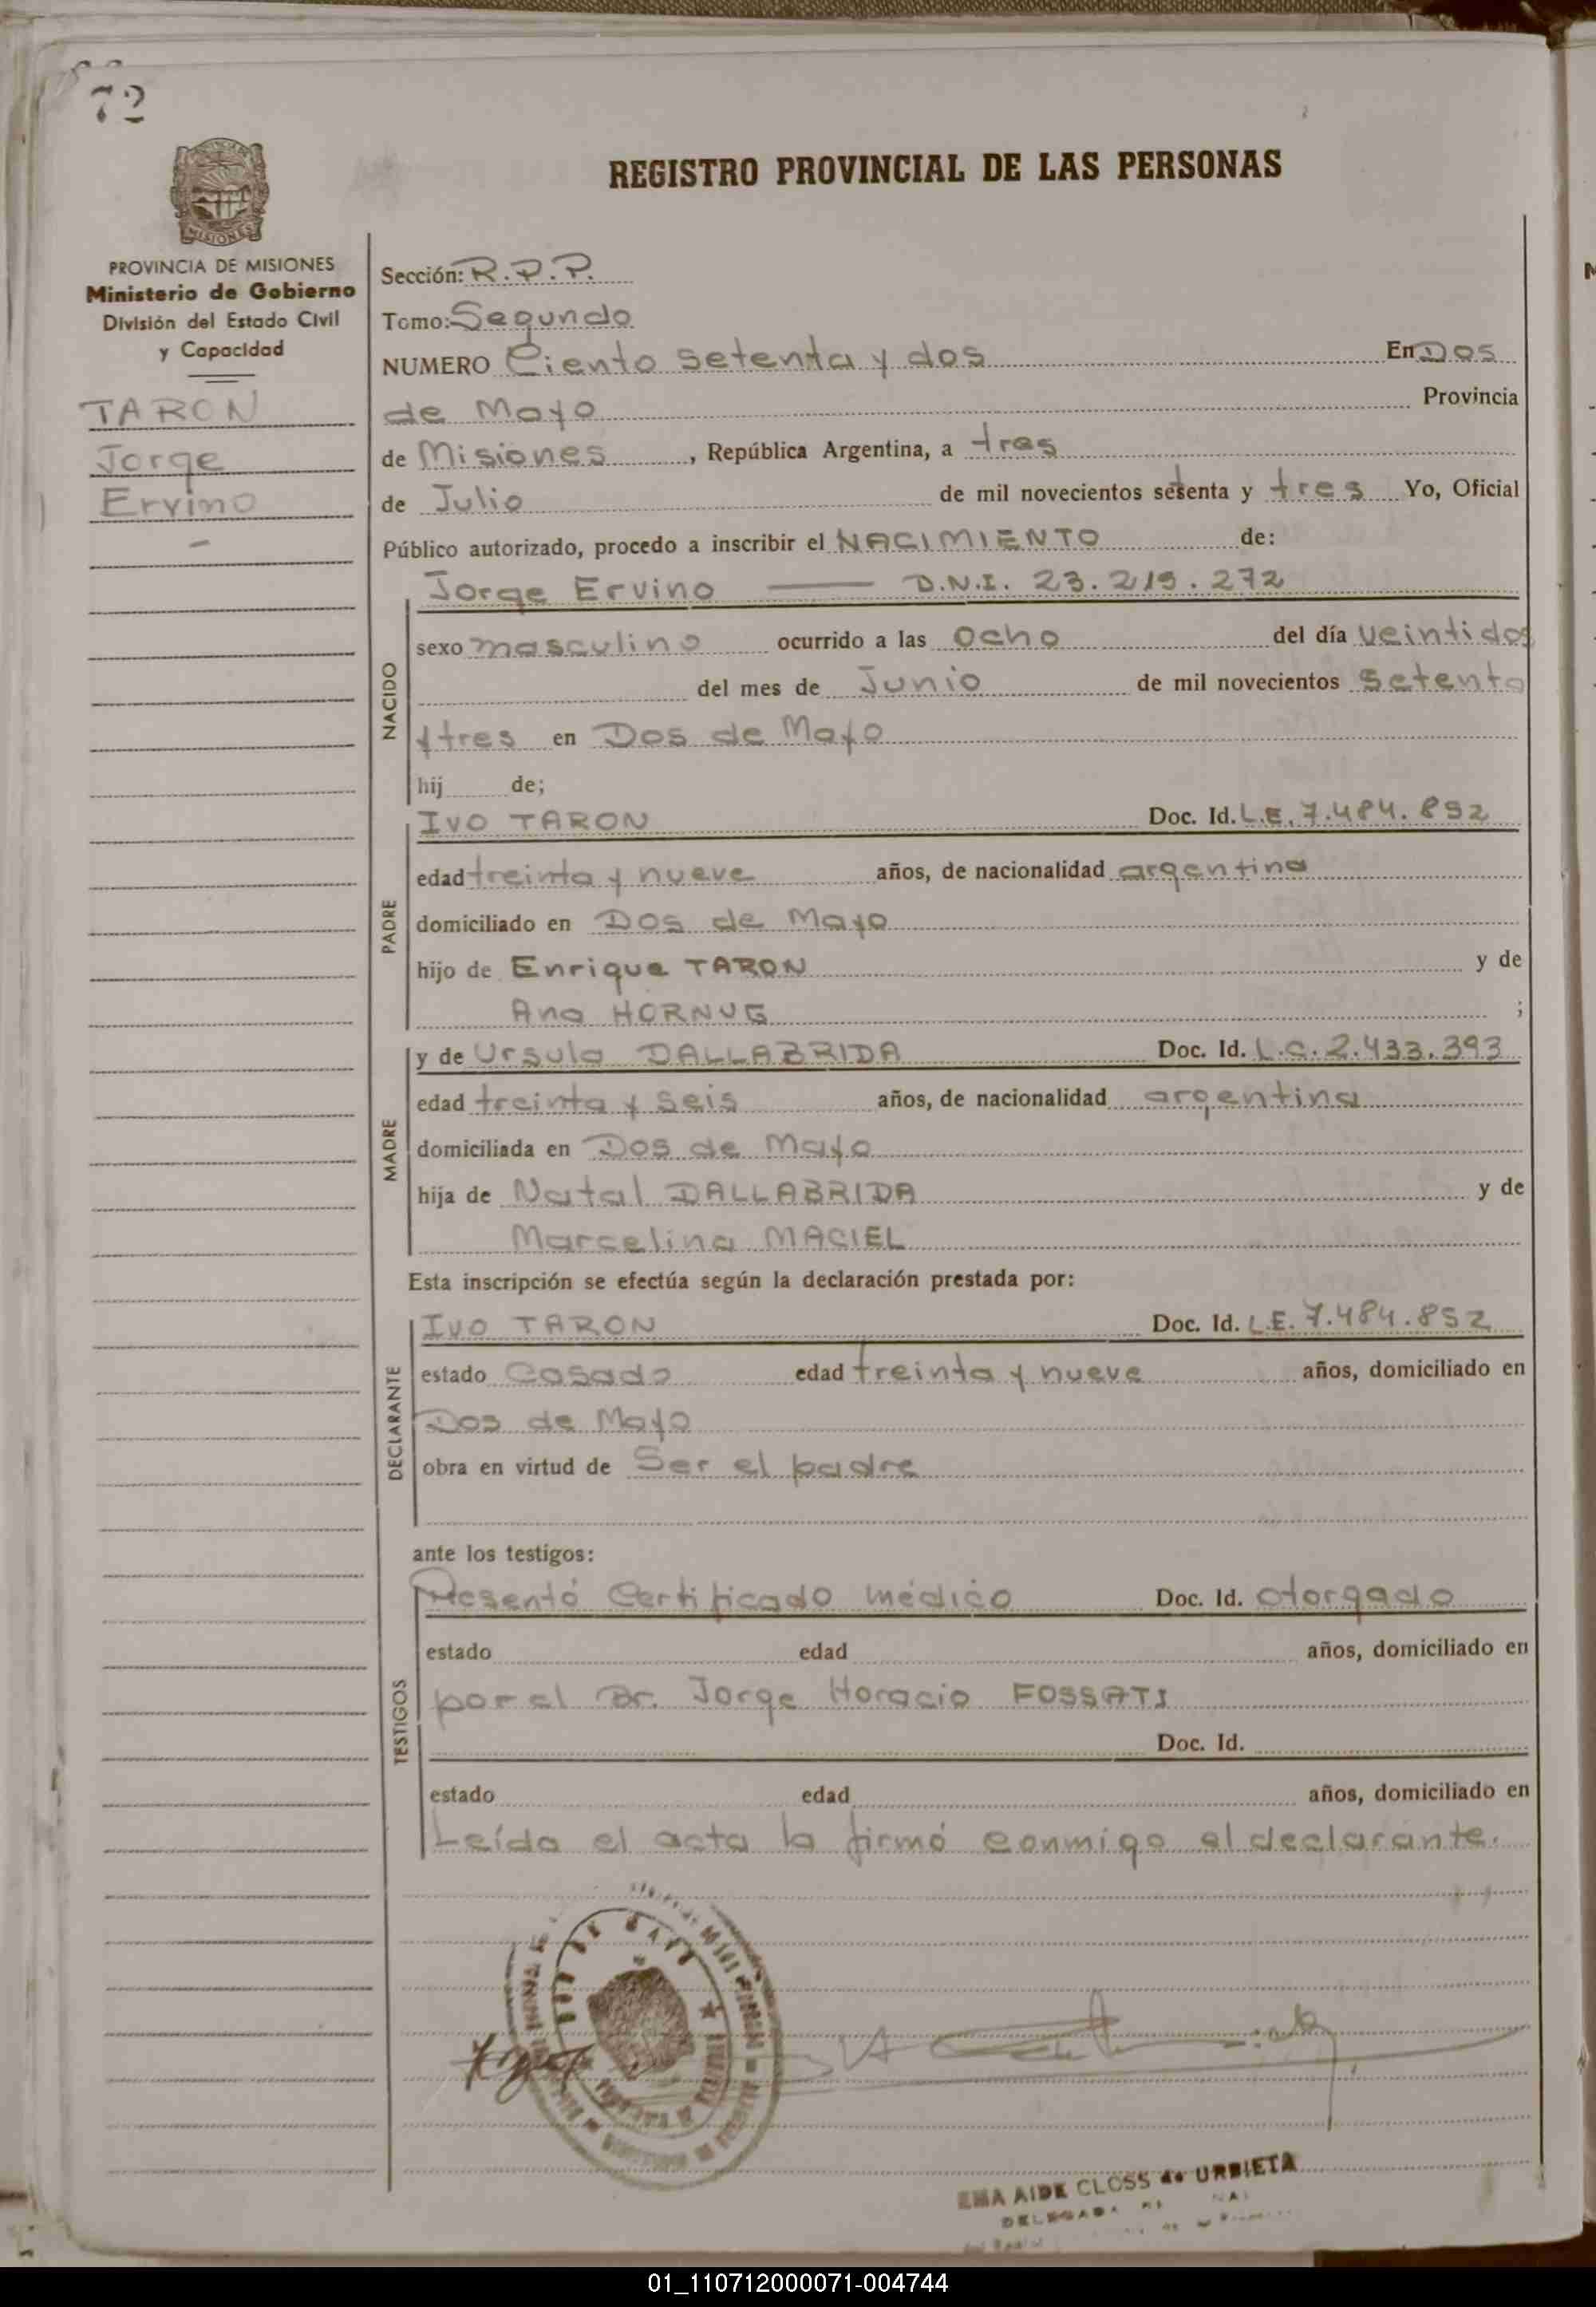 72
REGISTRO PROVINCIAL DE LAS PERSONAS
MISIONES
PROVINCIA DE MISIONES
Ministerio de Gobierno
División del Estado Civil
y Capacidad
TARON
Jorge
Ervino
Sección: R.P.P.
Tomo: Segundo
NUMERO Ciento setenta y dos En Dos
de Mayo Provincia
de Misiones, República Argentina, a tres
de Julio de mil novecientos setenta y tres Yo, Oficial
Público autorizado, procedo a inscribir el NACIMIENTO de:
Jorge Ervino — D.N.I. 23.219.272
NACIDO
sexo masculino ocurrido a las Ocho del día veintidos
del mes de Junio de mil novecientos setenta
y tres en Dos de Mayo
hij de;
PADRE
IVO TARON Doc. Id. L.E. 7.484.852
edad treinta y nueve años, de nacionalidad argentina
domiciliado en Dos de Mayo
hijo de Enrique TARON y de
Ana HORNUG ;
MADRE
y de Ursula DALLABRIDA Doc. Id. L.C. 2.433.393
edad treinta y seis años, de nacionalidad argentina
domiciliada en Dos de Mayo
hija de Natal DALLABRIDA y de
Marcelina MACIEL
Esta inscripción se efectúa según la declaración prestada por:
DECLARANTE
IVO TARON Doc. Id. L.E. 7.484.852
estado Casado edad treinta y nueve años, domiciliado en
Dos de Mayo
obra en virtud de Ser el padre
ante los testigos:
TESTIGOS
Presentó Certificado médico Doc. Id. otorgado
estado edad años, domiciliado en
por el Dr. Jorge Horacio FOSSATI
Doc. Id.
estado edad años, domiciliado en
Leída el acta la firmó conmigo el declarante.
EMA AIDE CLOSS de URBIETA
DELEGADA
01_110712000071-004744